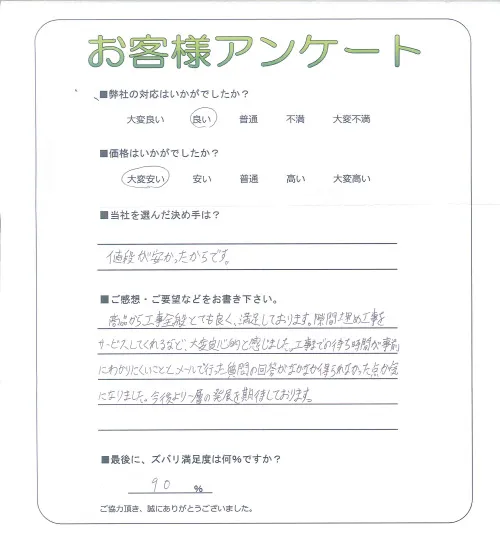 お客様アンケート
■弊社の対応はいかがでしたか？
大変良い 良い 普通 不満 大変不満
■価格はいかがでしたか？
大変安い 安い 普通 高い 大変高い
■当社を選んだ決め手は？
値段が安かったからです。
■ご感想・ご要望などをお書き下さい。
商品から工事全般とても良く、満足しております。隙間埋め工事を
サービスしてくれるなど、大変良心的と感じました。工事での待ち時間が事前
にわかりにくいことと、メールで行った質問の回答がなかなか得られなかった点が気
になりました。今後より一層の発展を期待しております。
■最後に、ズバリ満足度は何%ですか？
90 %
ご協力頂き、誠にありがとうございました。